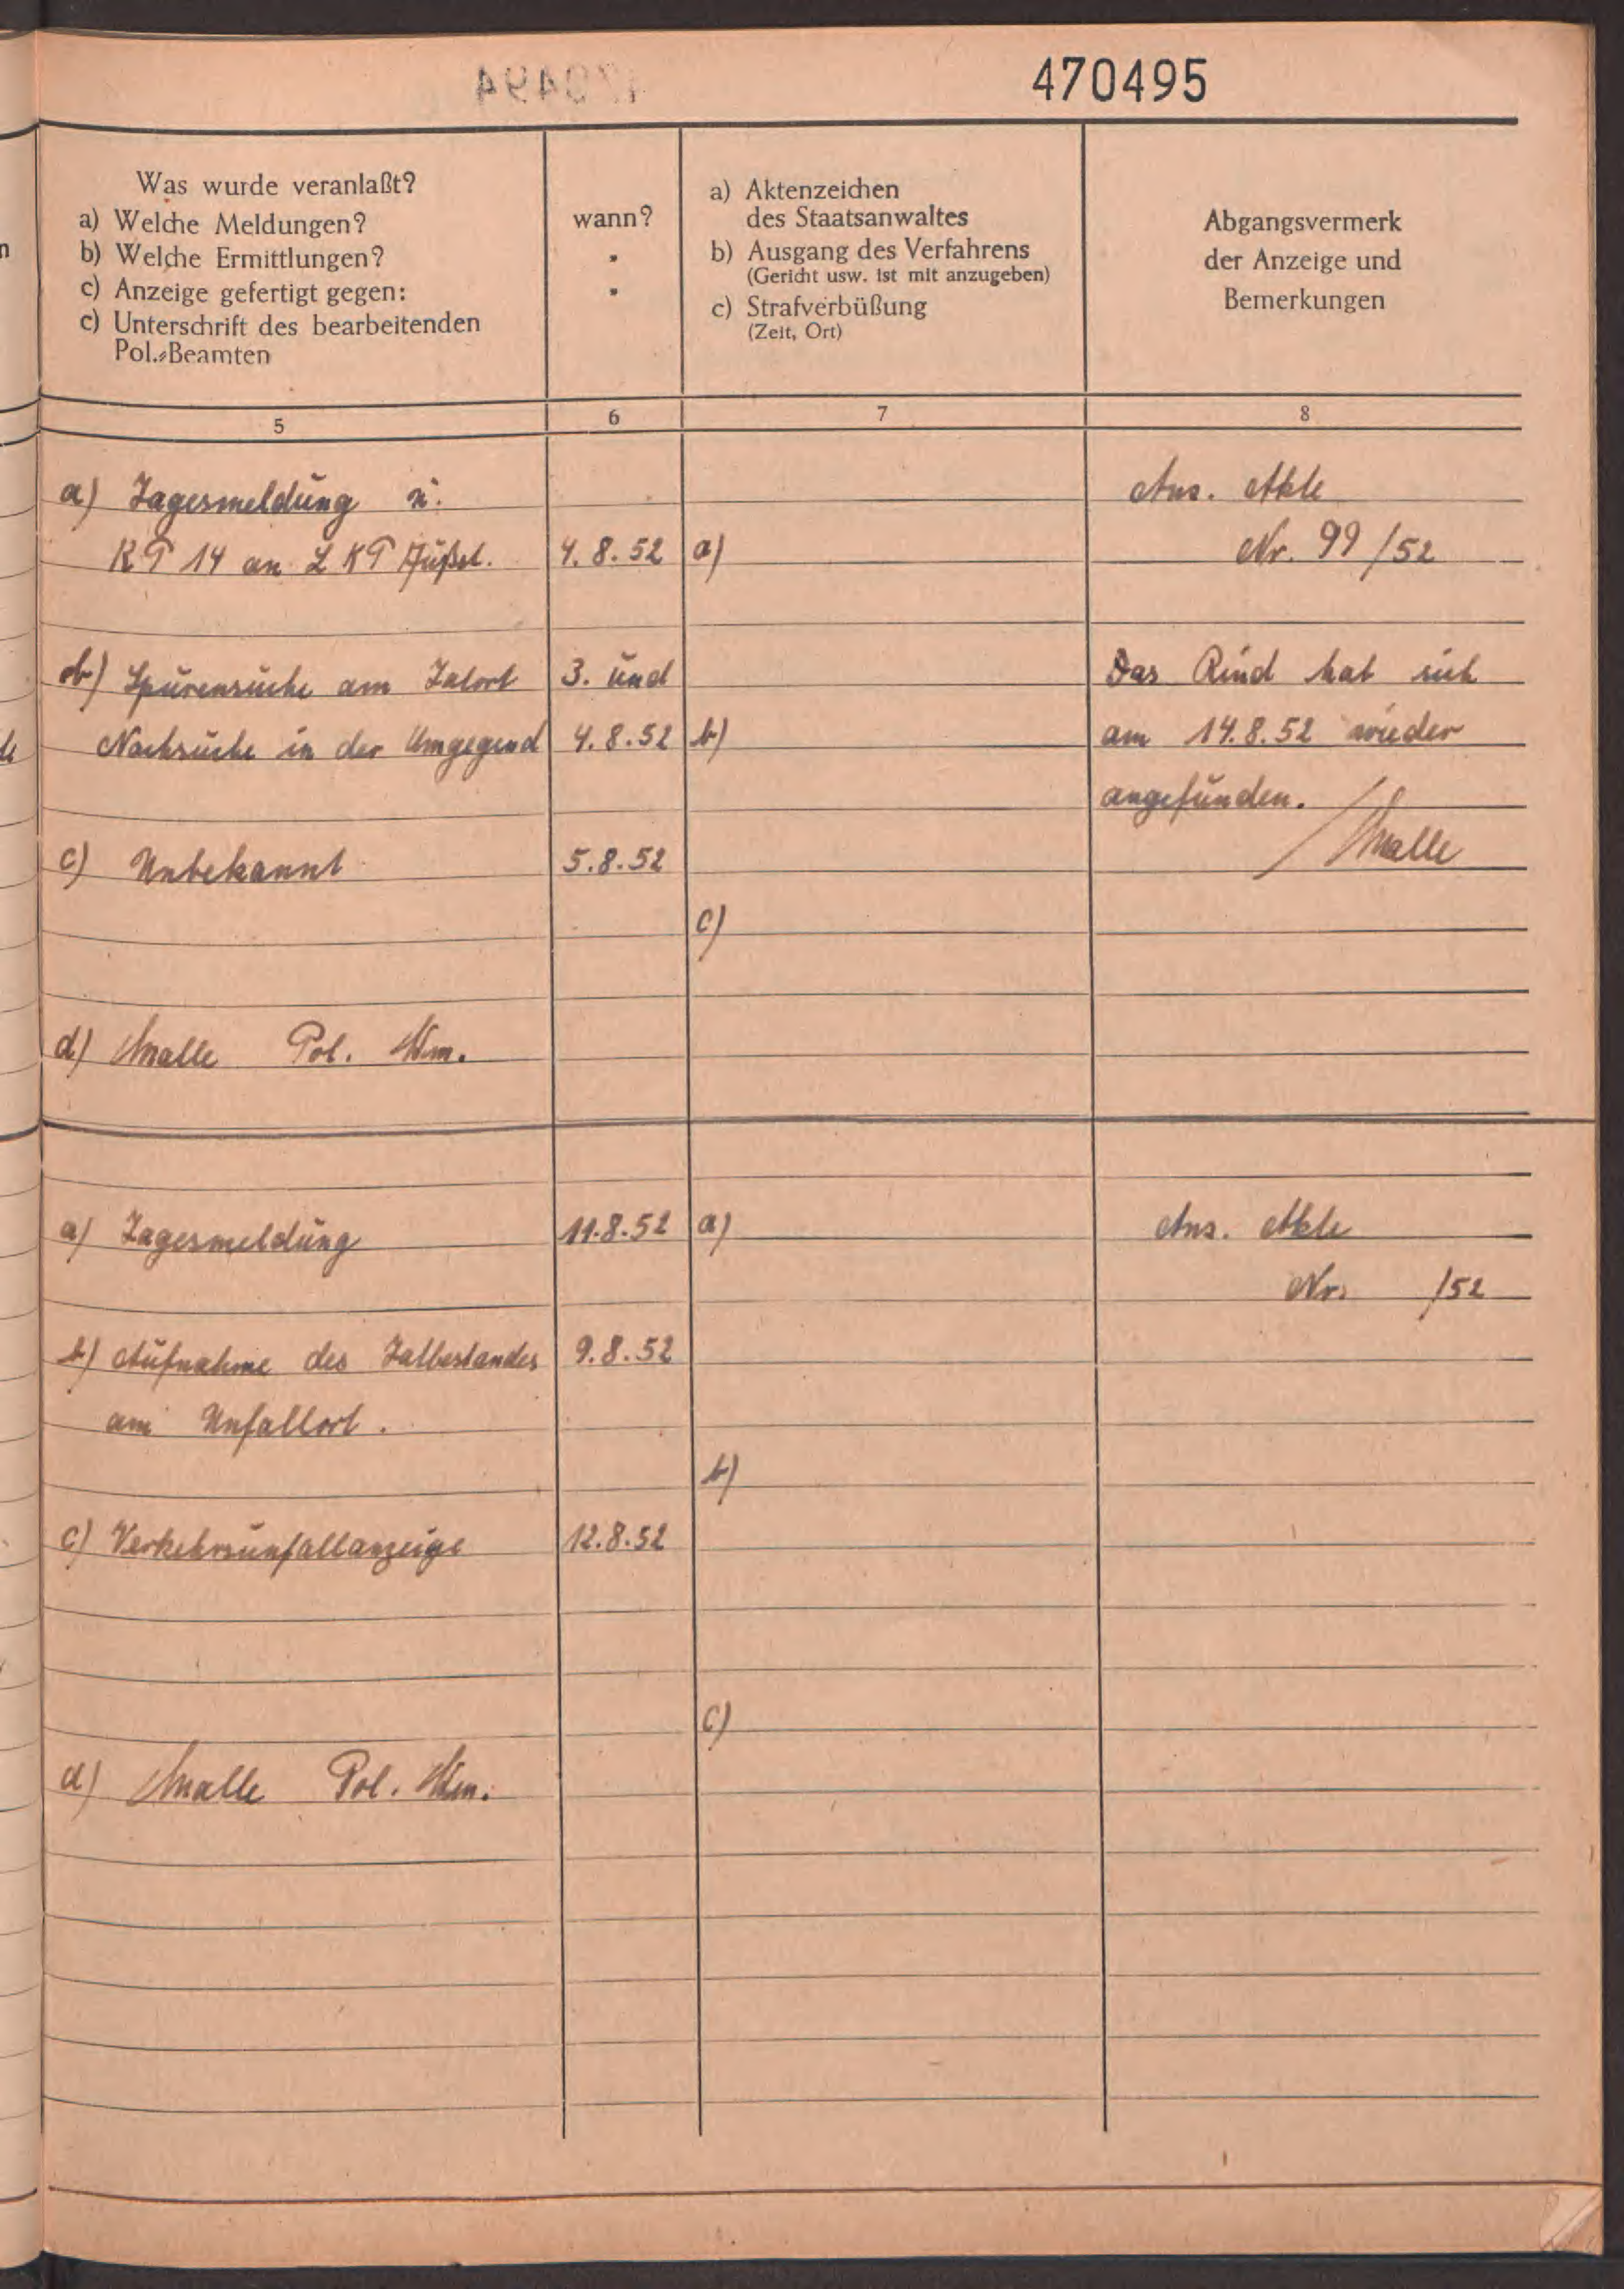 470495
Was wurde veranlaßt?
a) Welche Meldungen?
b) Welche Ermittlungen?
c) Anzeige gefertigt gegen:
c) Unterschrift des bearbeitenden
Pol.-Beamten
wann?
"
"
a) Aktenzeichen
des Staatsanwaltes
b) Ausgang des Verfahrens
(Gericht usw. ist mit anzugeben)
c) Strafverbüßung
(Zeit, Ort)
Abgangsvermerk
der Anzeige und
Bemerkungen
5 6 7 8
a) Tagesmeldung u. Anz. Akte
KP 14 an LKP 4.8.52 a) Nr. 99/52
b) Spurensuche am Tatort 3. und Das Rind hat sich
Nachsuche in der Umgegend 4.8.52 b) am 14.8.52 wieder
angefunden.
c) Unbekannt 5.8.52
c)
d) Pol. Wm.
a) Tagesmeldung 11.8.52 a) Anz. Akte
Nr. /52
b) Aufnahme des Tatbestandes 9.8.52
am Unfallort.
b)
c) Verkehrsunfallanzeige 12.8.52
c)
d) Pol. Wm.